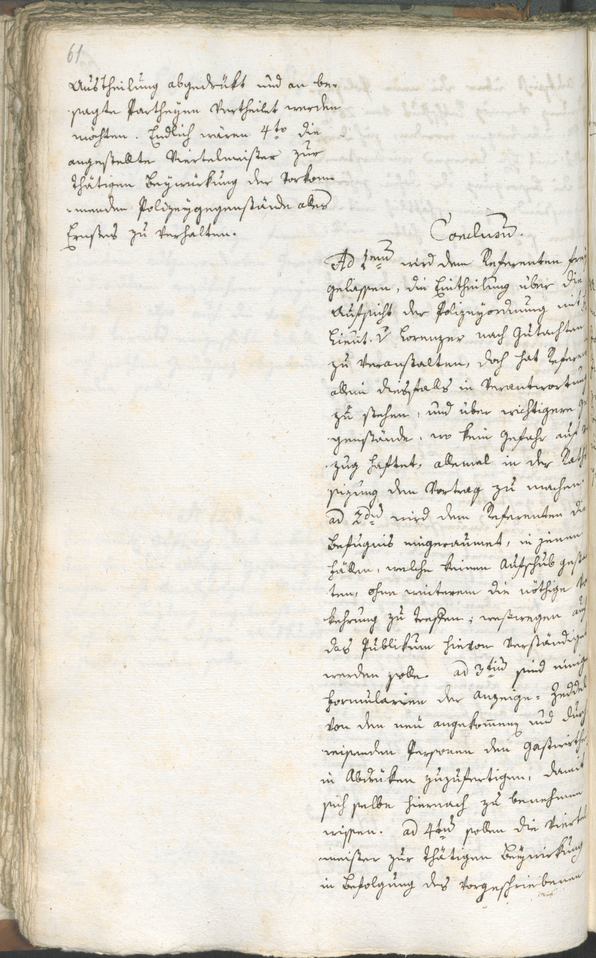 61
Austheilung abgedrükt und an be-
sagte Partheyen vertheilet werden
möchten. Endlich wären 4to die
angestellte Viertelmeister zur
thätigen Beywirkung der vorkom-
menden Polizeygegenstände alles
Ernstes zu verhalten.
Conclusum
Ad 1mum wird dem Referenten frey
gelassen, die Eintheilung über die
Aufsicht der Polizeyordnung mit
Lieut. v Lorenzer nach Gutachten
zu veranstalten, doch hat Referent
allein diesfalls in Verantwortung
zu stehen, und über wichtigere Ge
genstände, wo kein Gefahr auf Ver
zug haftet, allemal in der Raths
sizung den Vortrag zu machen.
ad 2dum wird dem Referenten die
Befugnis eingeraumet, in jenen
Fällen, welche keinen Aufschub gestat
ten, ohne weiterem die nöthige Vor
kehrung zu treffen; weßwegen auch
das Publikum hievon verständiget
werden solle. ad 3tium sind einige
Formularien der Anzeige-Zedel
von den neu angekommen und durch
reisenden Personen den Gastwirthen
in Abdruken zuzufertigen, damit
sich selbe hiernach zu benehmen
wissen. ad 4tum sollen die Viertel
meister zur thätigen Beywirkung
in Befolgung des vorgeschriebenen